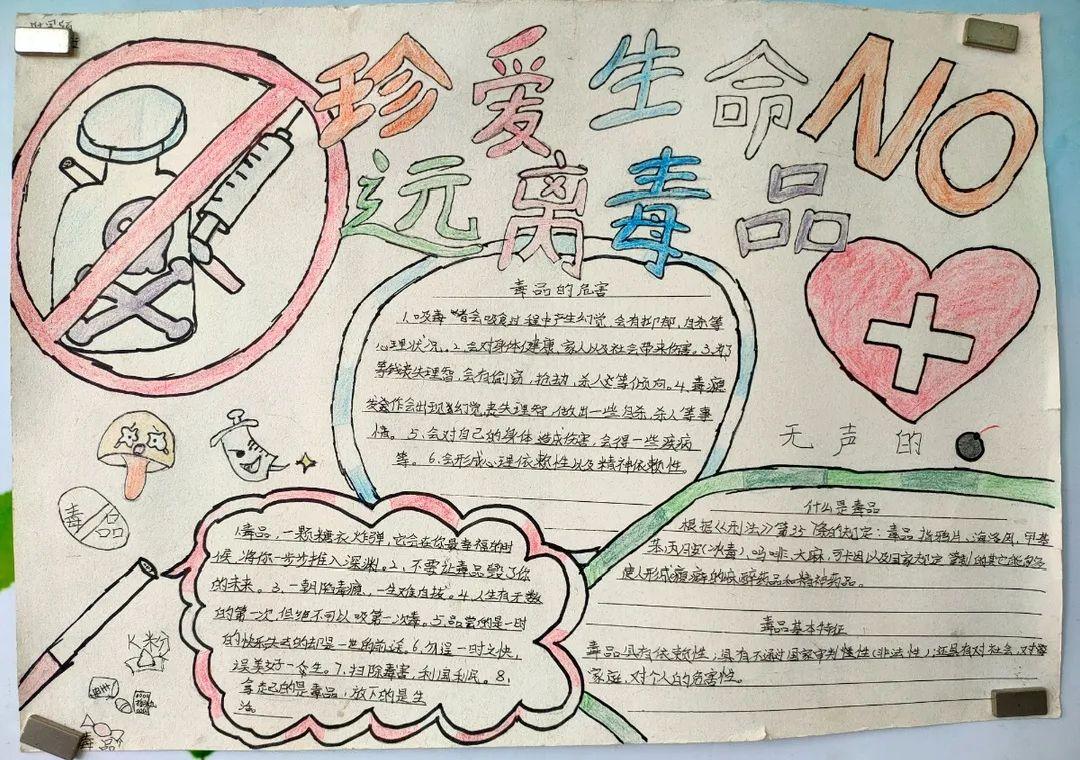 珍爱生命
NO
远离毒品
毒品的危害
1.吸毒者会吸食过程中产生幻觉,会有抑郁,自杀等
心理状况。2.会对身体健康,家人以及社会带来伤害。3.
等钱丧失理智,会有偷窃,抢劫,杀人等倾向。4.毒瘾
发作会出现幻觉,丧失理智,做出一些自杀,杀人等事
情。5.会对自己的身体造成伤害,会得一些疾病
等。6.会形成心理依赖性以及精神依赖性。
无声的
什么是毒品
根据《刑法》第35条的规定:毒品指鸦片、海洛因、甲基
苯丙胺(冰毒)、吗啡、大麻、可卡因以及国家规定管制的其它能够
使人形成瘾癖的麻醉药品和精神药品。
毒品基本特征
毒品具有依赖性;具有不通过国家审判惯性(非法性);还具有对社会,对
家庭,对个人的危害性。
毒品
1.毒品,一颗糖衣炸弹,它会在你最幸福的时
候,将你一步步推入深渊。2.不要让毒品毁了你
的未来。3.一朝吸毒瘾,一生难自拔。4.人生有无数
的第一次,但绝不可以吸第一次毒。5.品尝的是一时
的快乐失去的却是一世的前途。6.勿得一时之快,
误美好一生。7.扫除毒害,利国利民。8.
拿起的是毒品,放下的是生
活。
K粉
毒品